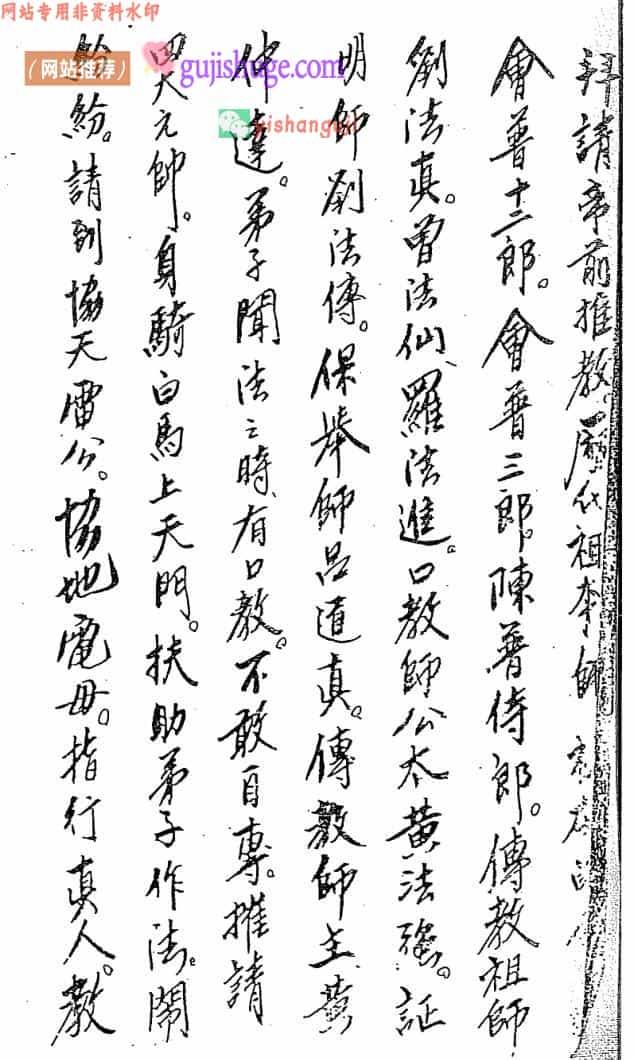 网站专用非资料水印
（网站推荐）
gujishuge.com
拜請帝前推教。歷代祖本師
會普十二郎。會普三郎。陳普侍郎。傳教祖師
劉法真。曾法仙、羅法進。口教師公太黃法強。証
明師劉法傳。保舉師呂道真。傳教師主黃
仲達。弟子聞法之時、有口教。不敢自專。摧請
元帥。身騎白馬上天門。扶助弟子作法。鬧
紛。請到協天雷公。協地電母。指行真人。教